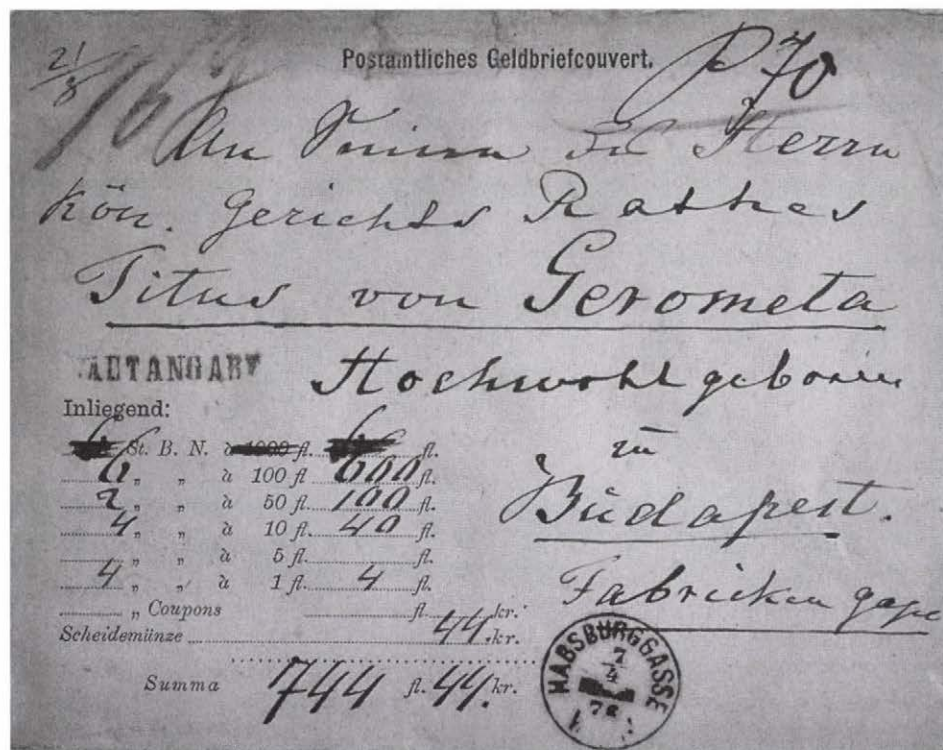 2/8
Postamtliches Geldbriefcouvert.
P 70
An Seine des Herrn
kön. Gerichts Rathes
Titus von Gerometa
Hochwohlgeboren
zu
Budapest.
Fabriken gasse
Inliegend:
St. B. N. à 1000 fl. fl.
6 „ „ à 100 fl. 600 fl.
2 „ „ à 50 fl. 100 fl.
4 „ „ à 10 fl. 40 fl.
„ „ à 5 fl. fl.
4 „ „ à 1 fl. 4 fl.
„ Coupons fl. kr.
Scheidemünze 44 kr.
Summa 744 fl. 44 kr.
HABSBURGGASSE
7
4